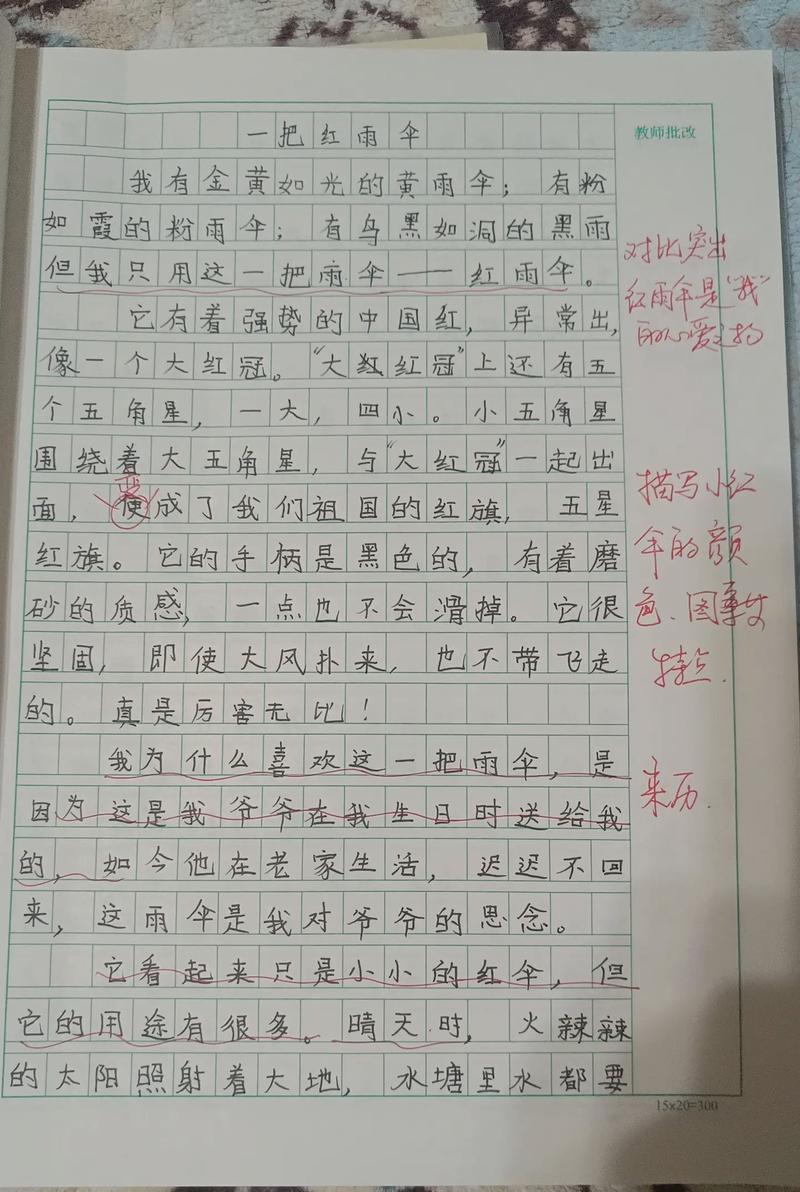 一把红雨伞
教师批改
我有金黄如光的黄雨伞；有粉
如霞的粉雨伞；有乌黑如洞的黑雨
但我只用这一把雨伞——红雨伞。
对比突出
红雨伞是“我”
的心爱之物
它有着强势的中国红，异常出，
像一个大红冠。“大红红冠”上还有五
个五角星，一大，四小。小五角星
围绕着大五角星，与“大红冠”一起出
变
面，使成了我们祖国的红旗，五星
红旗。它的手柄是黑色的，有着磨
砂的质感，一点也不会滑掉。它很
坚固，即使大风扑来，也不带飞走
的。真是厉害无比！
描写小红
伞的颜
色、图案
特点.
我为什么喜欢这一把雨伞，是
因为这是我爷爷在我生日时送给我
的，如今他在老家生活，迟迟不回
来，这雨伞是我对爷爷的思念。
来历.
它看起来只是小小的红伞，但
它的用途有很多。晴天时，火辣辣
的太阳照射着大地，水塘里水都要
15x20=300